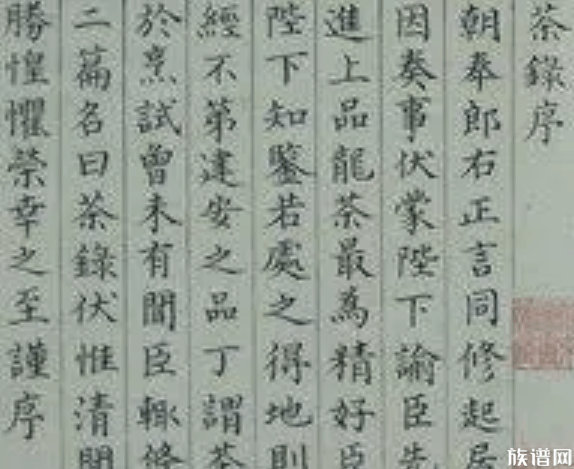 茶錄序
朝奉郎右正言同修起居
因奏事伏蒙陛下諭臣先
進上品龍茶最為精好臣
陛下知鑒若處之得地則
經不第建安之品丁謂茶
於烹試曾未有聞臣輒條
二篇名曰茶錄伏惟清閒
勝惶懼榮幸之至謹序
族谱网